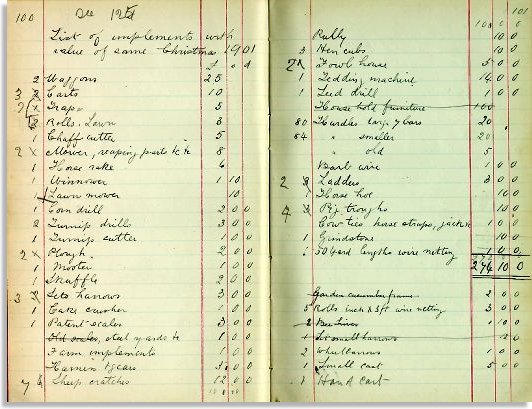 100 Dec 12th
List of implements with
value of same Christmas 1901
£ s d
2 Waggons 25
3 Carts 10
2 x Traps 5
2 Rolls. Lawn 3
1 Chaff cutter 5
2 x Mower, reaping parts &c &c 8
1 Horse rake 4
1 Winnower 1 10
Lawn mower 10
1 Corn drill 2 0 0
2 Turnip drills 3 0 0
1 Turnip cutter 1 0 0
2 x Plough 2 0 0
1 Mooter 1 0 0
Skuffle 2 0 0
3 Sets harrows 3 0 0
1 Cake crusher 1 0 0
1 Patent scales 3 0 0
Old scales, steel yards &c 1 0 0
Farm implements 1 0 0
Harness & gears 3 0 0
7 6 Sheep cratches 12 0 0
101
Pully 10 0
3 Hen cubs 10 0
2 Fowl house 5 0 0
1 Tedding machine 14 0 0
1 Seed drill 1 0 0
House hold furniture 100
80 Hurdles large 7 bars 20
84 " smaller 20
" old 5
Barb wire 1 0 0
2 3 Ladders 3 0 0
1 Horse hoe 1 0
4 Pig troughs 10 0
Cow ties horse straps,
1 Grindstone 10 0
50 yard lengths wire netting 1 0 0
274 10 0
Garden cucumber frame 2 0 0
5 Rolls inch x 3 ft wire netting 3 0 0
2 Bee hives 1 10 0
1 Set small harrows
2 Wheelbarrows 1 0 0
1 Small cart 5 0 0
1 Hand cart